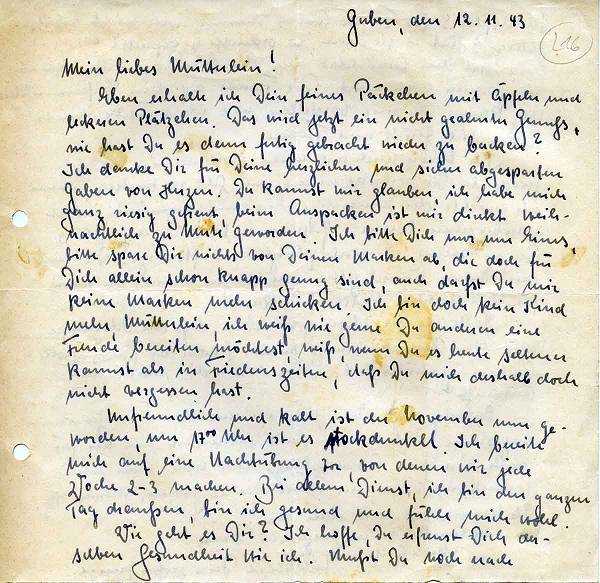 Guben, den 12.11.43
216
Mein liebes Mütterlein!
Eben erhalte ich Dein feines Päckchen mit Äpfeln und
leckeren Plätzchen. Das wird jetzt ein nicht geahnter Genuß,
wie hast Du es denn fertig gebracht wieder zu backen?
Ich danke Dir für Deine herzlichen und sicher abgesparten
Gaben von Herzen. Du kannst mir glauben, ich habe mich
ganz riesig gefreut, beim Auspacken ist mir direkt weih-
nachtlich zu Mute geworden. Ich bitte Dich nur um Eines,
bitte spare Dir nichts von Deinen Marken ab, die doch für
Dich allein schon knapp genug sind, auch darfst Du mir
keine Marken mehr schicken. Ich bin doch kein Kind
mehr, Mütterlein, ich weiß wie gerne Du anderen eine
Freude bereiten möchtest, weiß, wenn Du es heute seltener
kannst als in Friedenszeiten, daß Du mich deshalb doch
nicht vergessen hast.
Unfreundlich und kalt ist der November nun ge-
worden, um 17⁰⁰ Uhr ist es stockdunkel. Ich bereite
mich auf eine Nachtübung vor von denen wir jede
Woche 2-3 machen. Bei allem Dienst, ich bin den ganzen
Tag draußen, bin ich gesund und fühle mich wohl.
Wie geht es Dir? Ich hoffe, Du erfreust Dich der-
selben Gesundheit wie ich. Mußt Du noch nach